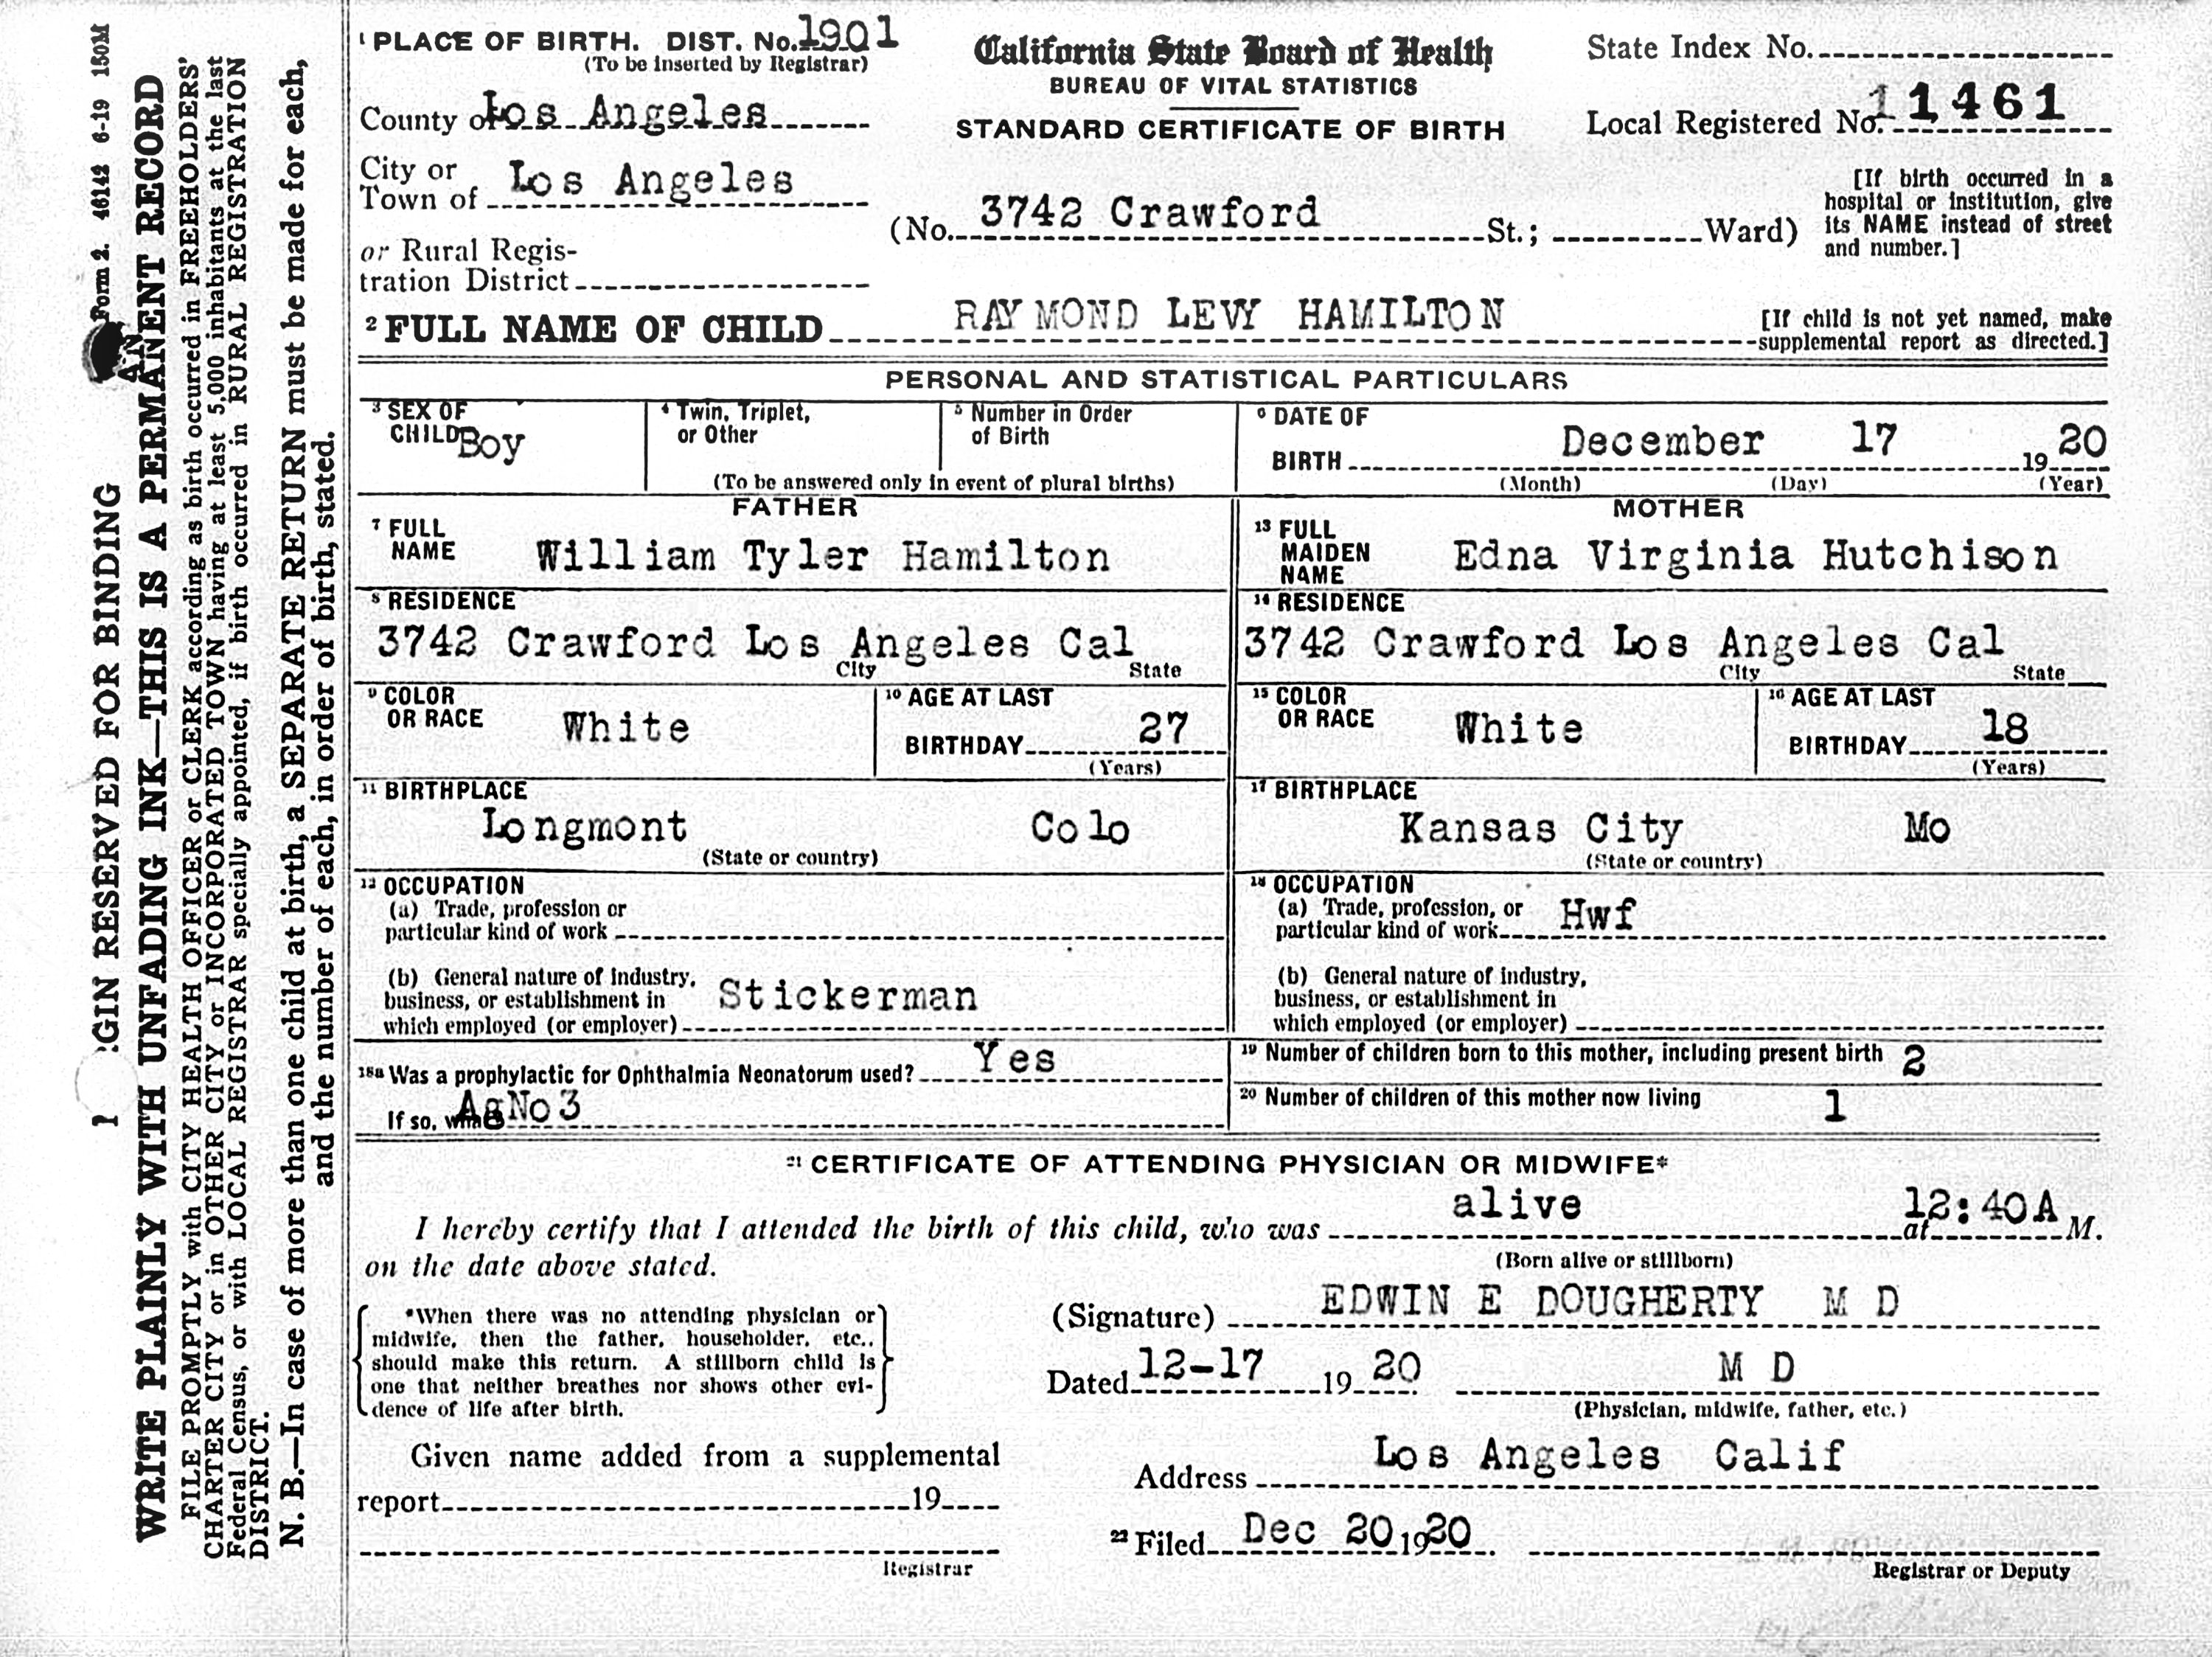 Form 2. 46142 6-19 150M
GIN RESERVED FOR BINDING
WRITE PLAINLY WITH UNFADING INK—THIS IS A PERMANENT RECORD
AN
FILE PROMPTLY with CITY HEALTH OFFICER or CLERK according as birth occurred in FREEHOLDERS'
CHARTER CITY or in OTHER CITY or INCORPORATED TOWN having at least 5,000 inhabitants at the last
Federal Census, or with LOCAL REGISTRAR specially appointed, if birth occurred in RURAL REGISTRATION
DISTRICT.
N. B.—In case of more than one child at birth, a SEPARATE RETURN must be made for each,
and the number of each, in order of birth, stated.
1 PLACE OF BIRTH. DIST. No. 1901
(To be inserted by Registrar)
California State Board of Health
BUREAU OF VITAL STATISTICS
STANDARD CERTIFICATE OF BIRTH
State Index No.
Local Registered No. 11461
County of Los Angeles
City or
Town of Los Angeles
or Rural Regis-
tration District
(No. 3742 Crawford St.; Ward)
[If birth occurred in a
hospital or institution, give
its NAME instead of street
and number.]
2 FULL NAME OF CHILD RAYMOND LEVY HAMILTON
[If child is not yet named, make
supplemental report as directed.]
PERSONAL AND STATISTICAL PARTICULARS
3 SEX OF
CHILD Boy
4 Twin, Triplet,
or Other
5 Number in Order
of Birth
(To be answered only in event of plural births)
6 DATE OF
BIRTH December 17 1920
(Month) (Day) (Year)
FATHER
7 FULL
NAME William Tyler Hamilton
8 RESIDENCE
3742 Crawford Los Angeles Cal
City State
9 COLOR
OR RACE White
10 AGE AT LAST
BIRTHDAY 27
(Years)
11 BIRTHPLACE
Longmont Colo
(State or country)
12 OCCUPATION
(a) Trade, profession or
particular kind of work
(b) General nature of industry,
business, or establishment in
which employed (or employer) Stickerman
MOTHER
13 FULL
MAIDEN
NAME Edna Virginia Hutchison
14 RESIDENCE
3742 Crawford Los Angeles Cal
City State
15 COLOR
OR RACE White
16 AGE AT LAST
BIRTHDAY 18
(Years)
17 BIRTHPLACE
Kansas City Mo
(State or country)
18 OCCUPATION
(a) Trade, profession, or
particular kind of work Hwf
(b) General nature of industry,
business, or establishment in
which employed (or employer)
18a Was a prophylactic for Ophthalmia Neonatorum used? Yes
If so, what AgNo3
19 Number of children born to this mother, including present birth 2
20 Number of children of this mother now living 1
21 CERTIFICATE OF ATTENDING PHYSICIAN OR MIDWIFE*
I hereby certify that I attended the birth of this child, who was alive at 12:40A M.
(Born alive or stillborn)
on the date above stated.
*When there was no attending physician or
midwife, then the father, householder, etc.,
should make this return. A stillborn child is
one that neither breathes nor shows other evi-
dence of life after birth.
(Signature) EDWIN E DOUGHERTY M D
Dated 12-17 1920 M D
(Physician, midwife, father, etc.)
Given name added from a supplemental
report 19
Registrar
Address Los Angeles Calif
22 Filed Dec 20 1920
Registrar or Deputy